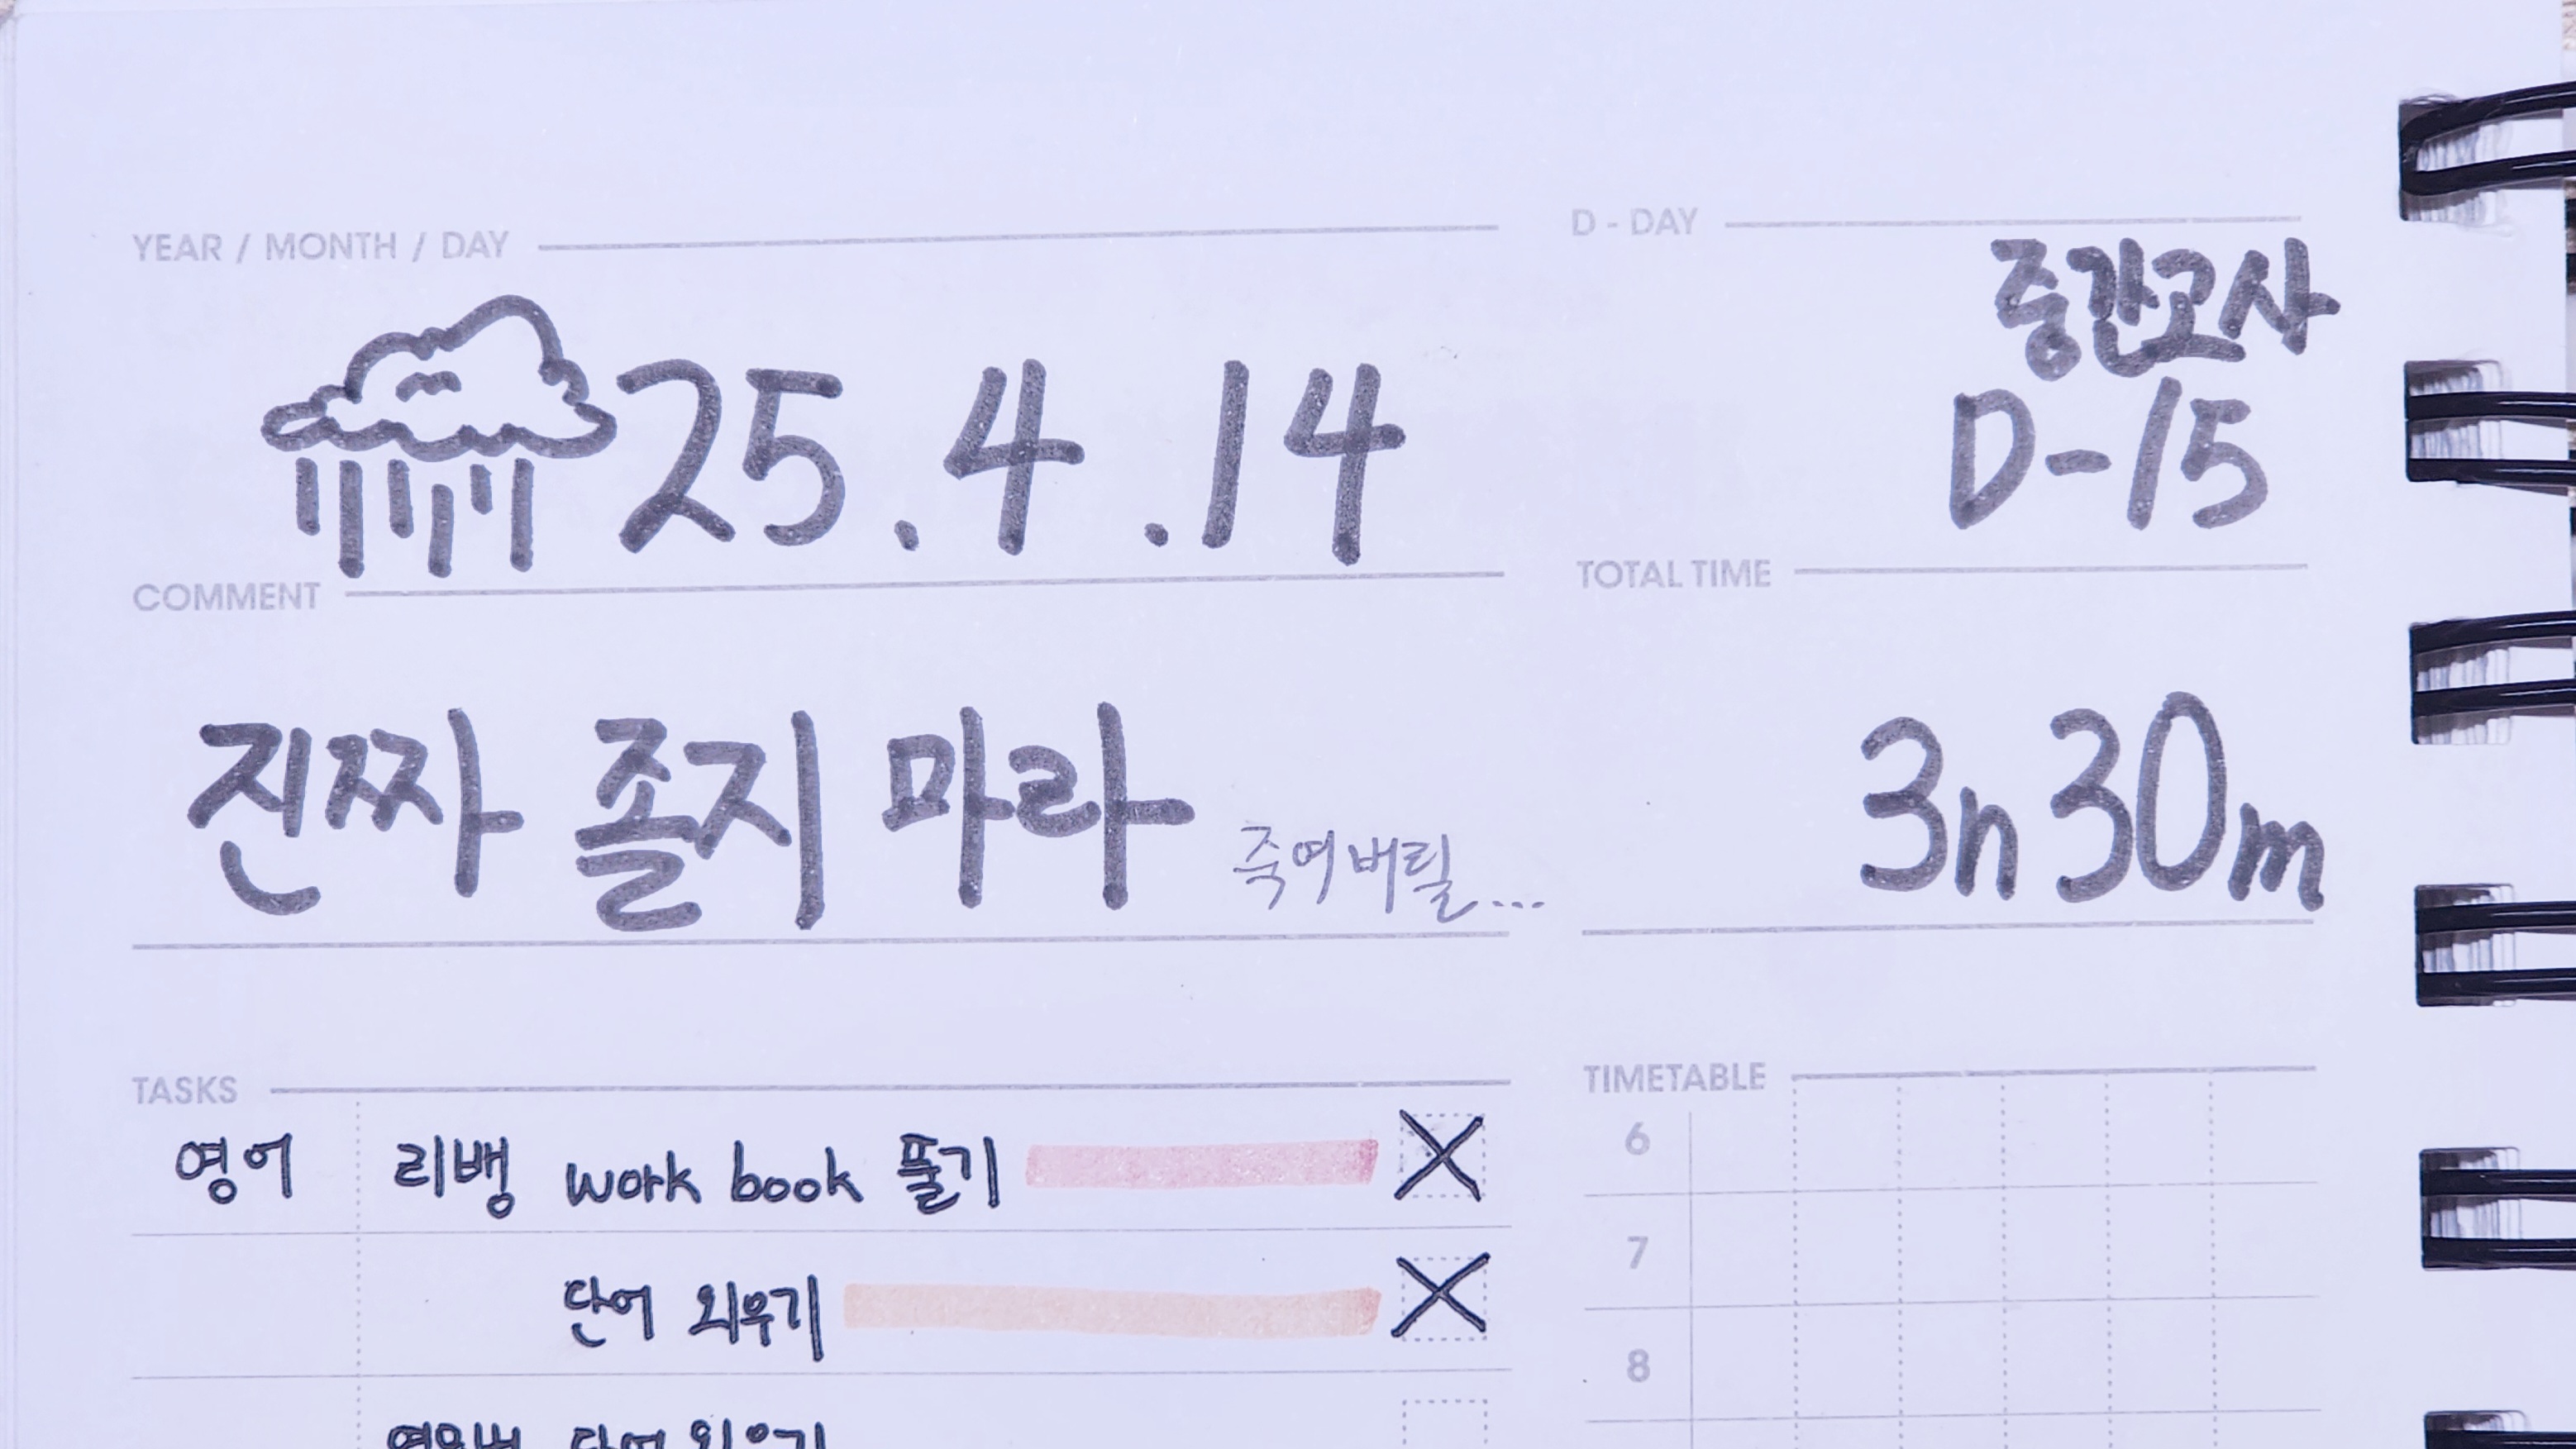 YEAR / MONTH / DAY
25.4.14
D - DAY
중간고사
D-15
COMMENT
진짜 졸지 마라
죽여버릴...
TOTAL TIME
3h 30m
TASKS
영어 리뱅 work book 풀기
단어 외우기
단어 외우기
TIMETABLE
6
7
8